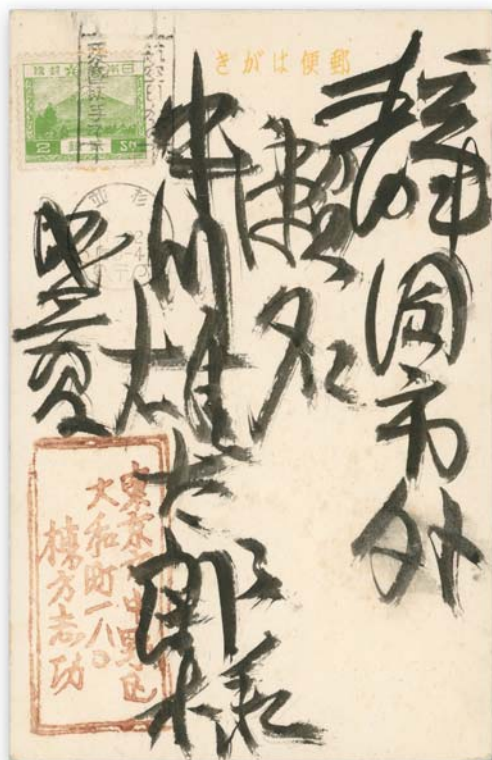 郵便はがき
静岡市外
瀬名
中川雄太郎様
東京市中野区
大和町一八〇
棟方志功